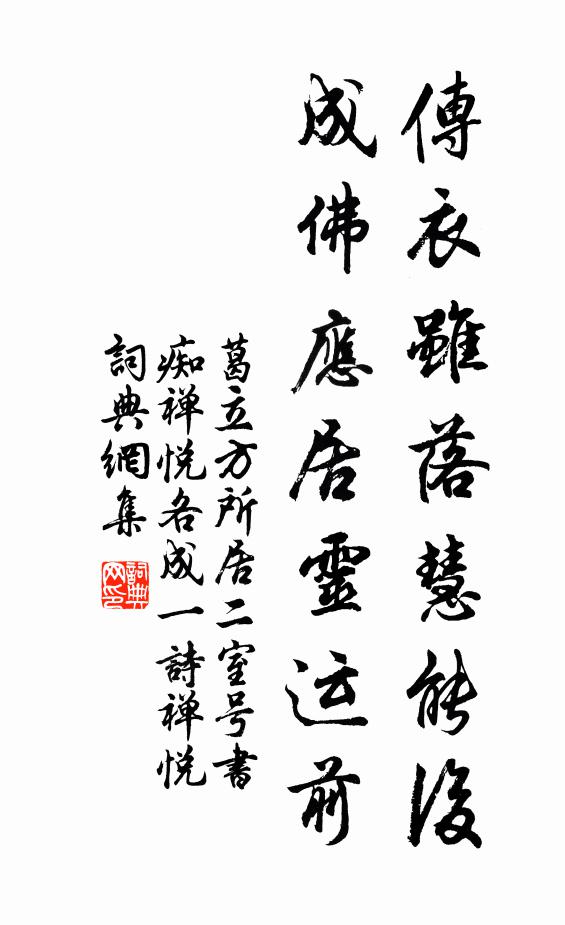 傳衣雖落慧能後
成佛應居靈运前
葛立方所居二室号書
痴禅悦各成一詩禅悦
詞典網集
詞典
网印